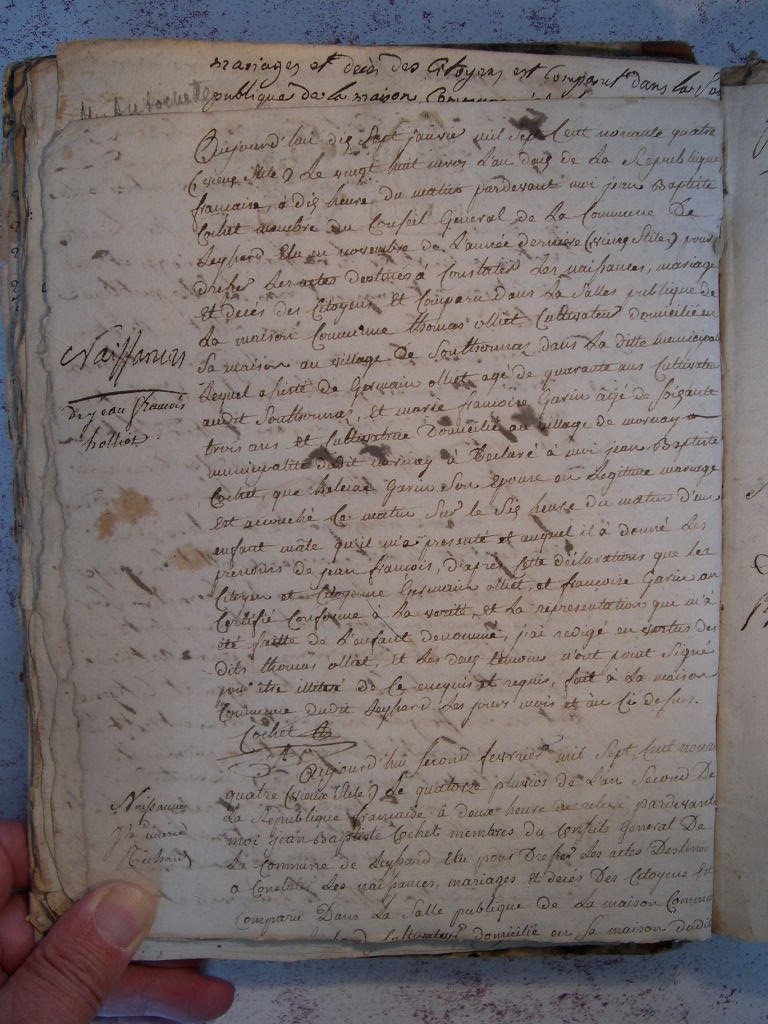 mariages et décès des Citoyens est Comparu dans la
publique de la maison Commune
Aujourd'hui dix Sept janvier mil Sept Cent nonante quatre
(vieux Stile) Le vingt huit nivos L'an deux de La République
française, a dix heure du matin pardevant moi jean Baptiste
Cochet membre du Conseil General de La Commune De
Leyssard Elu en novembre de L'année derniere (vieux Stile) pour
dresser Les actes destinés à Constater Les naissances, mariage
et décès des Citoyens Est Comparu dans La Salles publique de
La maison Commune thomas olliet Cultivateur domicilié en
Sa maison au village de Soulthonnax dans La ditte municipal
Lequel assisté de Germain olliet agé de quarante ans Cultivateur
audit Soulthonnax, Et marie francoise Garin âgé de Soixante
trois ans et Cultivatrice Domicilié au village de mornay
municipalité dudit mornay à Déclaré à moi jean Baptiste
Cochet, que Garin Son Epouse en Legitime mariage
Est accouché Ce matin Sur le Six heure du matin d'un
enfant mâle qu'il m'a presenté et auquel il à donné Les
prenoms de jean francois, d'après Cette déclarations que Les
Citoyen et Citoyenne Germain olliet, et francoise Garin on
Certifié Conforme à La verité, et La representations que m'à
été faitte de L'enfant denommé, j'ai redigé en vertus des
dits thomas olliet, Et Les deux témoins n'ont point Signé
pour être illiteré de Ce enquis et requis, fait à La maison
Commune dudit Leyssard Les jours mois et àn Ci dessus.
Cochet
Naissances
de jean francois
holliet.
Aujourd'hui Second fevrier mil Sept Cent nonan
quatre (vieux Stile) Le quatorze pluvios de L'an Second De
La République francaise à deux heure de relevé pardevant
moi jean Baptiste Cochet membres du Conseils General De
La Commune de Leyssard Elu pour Dresser Les actes Destinés
a Constater Les naissances, mariages et décès Des Citoyens Est
Comparu Dans La Salle publique de La maison Commun
Cultivateur domicilié en Sa maison dudit
Naissance
d